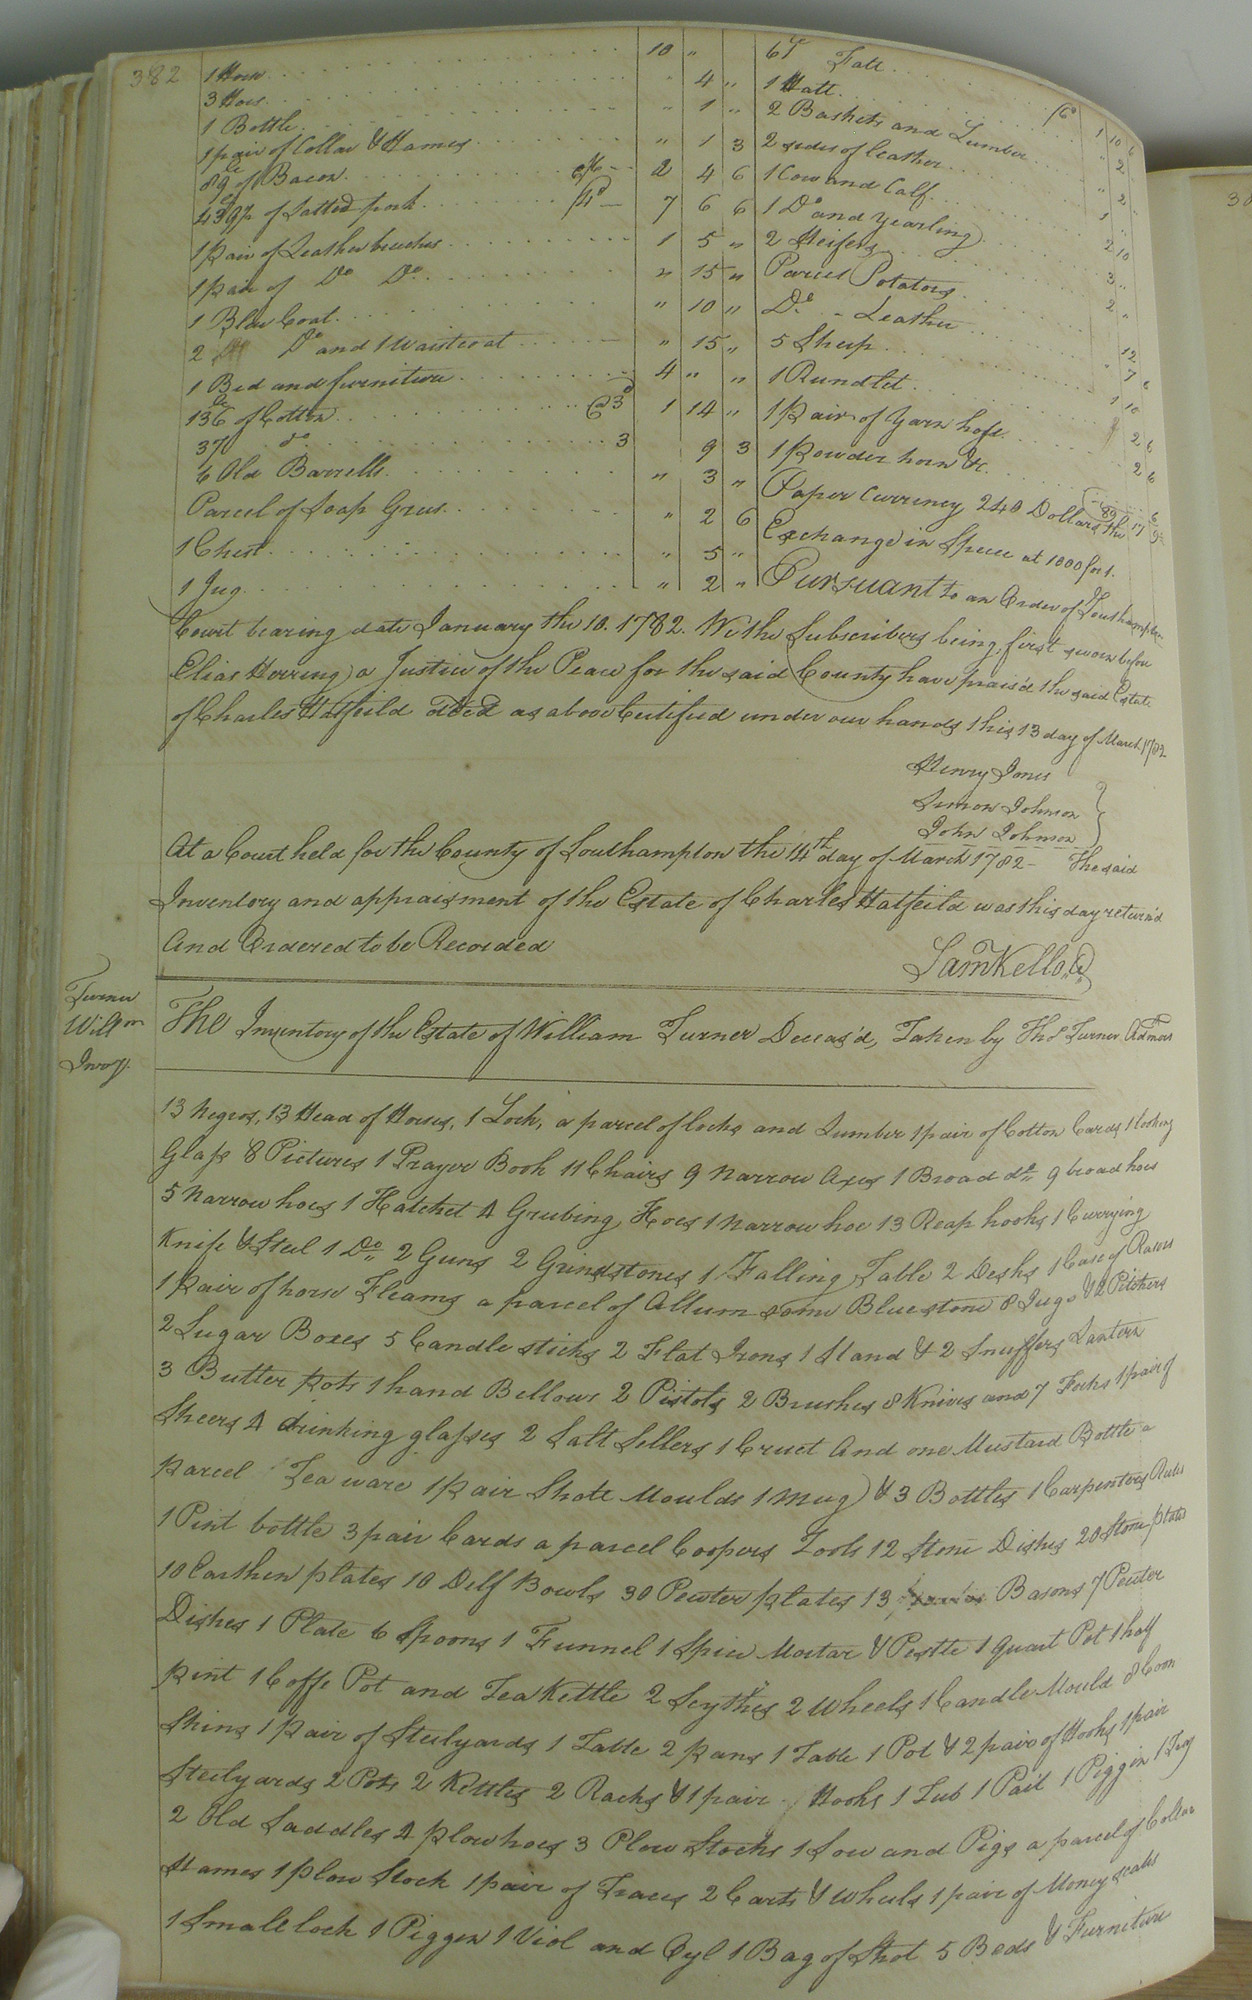 382
1 Horn 10 "
3 Hoes " 4 "
1 Bottle " 1 "
1 pair of Collar & Hames " 1 3
89 lb of Bacon @ /6 2 4 6
439 lb of Salted pork /4d 7 6 6
1 Pair of Leather breeches 1 5 "
1 Pair of Do Do " 15 "
1 Blew Coat " 10 "
2 Do and 1 Waistcoat " 15 "
1 Bed and furniture 4 " "
136 lb of Cotton @ 3d 1 14 "
37 do 3 9 3
6 Old Barrells " 3 "
Parcel of Soap Greese " 2 6
1 Chest " 5 "
1 Jug " 2 "
61 Fatt /6d 1 10 6
1 Hatt " 2
2 Baskets and Lumber " 2
2 sides of leather 1
1 Cow and Calf 2 10
1 Do and yearling 3 "
2 Heifers 2 "
Parcel Potatoes 12
Do - Leather " 7 6
5 Sheep 1 10
1 Rundlet 2 6
1 Pair of Yarn hose 2 6
1 Powder horn &c 6
Paper Currency 240 Dollars the
Exchange in Specie at 1000 for 1.
89 17 9
Pursuant to an Order of Southampton
Court bearing date January the 10. 1782. We the Subscribers being first sworn before
Elias Herring a Justice of the Peace for the said County have praisd the said Estate
of Charles Hatfeild Deced as above Certified under our hands this 13 day of March 1782
Henry Jones
Simon Johnson
John Johnson
At a Court held for the County of Southampton the 14th day of March 1782 - The said
Inventory and appraisment of the Estate of Charles Hatfeild was this day return'd
And Ordered to be Recorded
Saml Kello, C
Turner
Willm
Invoy.
The Inventory of the Estate of William Turner Deceas'd, Taken by Thos Turner Admor
13 Negros, 13 Head of Horses, 1 Lock, a parcel of locks and Lumber 1 pair of Cotton Cards 1 looking
Glass 8 Pictures 1 Prayer Book 11 Chairs 9 Narrow Axes 1 Broad do 9 broad hoes
5 Narrow hoes 1 Hatchet 4 Grubing Hoes 1 narrow hoe 13 Reap hooks 1 Currying
Knife & Steel 1 Do 2 Guns 2 Grindstones 1 Falling Table 2 Desks 1 Case of Rasors
1 Pair of horse Fleams a parcel of Allum some Bluestone 8 Jugs & 2 Pitchers
2 Sugar Boxes 5 Candlesticks 2 Flat Irons 1 Stand & 2 Snuffers Lantern
3 Butter Pots 1 hand Bellows 2 Pistols 2 Brushes 8 Knives and 7 Forks 1 pair of
Sheers 4 drinking glasses 2 Salt Sellers 1 Cruet And one Mustard Bottle a
Parcel Tea ware 1 Pair Shott Moulds 1 Mug & 3 Bottles 1 Carpenters Rules
1 Pint bottle 3 pair Cards a parcel Coopers Tools 12 Stone Dishes 20 Stone plates
10 Earthen plates 10 Delf Bowls 30 Pewter plates 13 Basons 7 Pewter
Dishes 1 Plate 6 Spoons 1 Funnel 1 Spice Mortar & Pestle 1 Quart Pot 1 half
Pint 1 Coffe Pot and Tea Kettle 2 Scythes 2 Wheels 1 Candle Mould 8 Coon
Skins 1 Pair of Steelyards 1 Table 2 Pans 1 Table 1 Pot & 2 pair of Hooks 1 pair
Steelyards 2 Pots 2 Kettles 2 Racks & 1 pair Hooks 1 Tub 1 Pail 1 Piggin 1 Jug
2 Old Saddles 4 Plow hoes 3 Plow Stocks 1 Sow and Pigs a parcel of Collar
Hames 1 Plow Stock 1 pair of Traces 2 Carts & Wheels 1 pair of Money scales
1 Small lock 1 Piggen 1 Viol and Oyl 1 Bag of Shot 5 Beds & Furniture